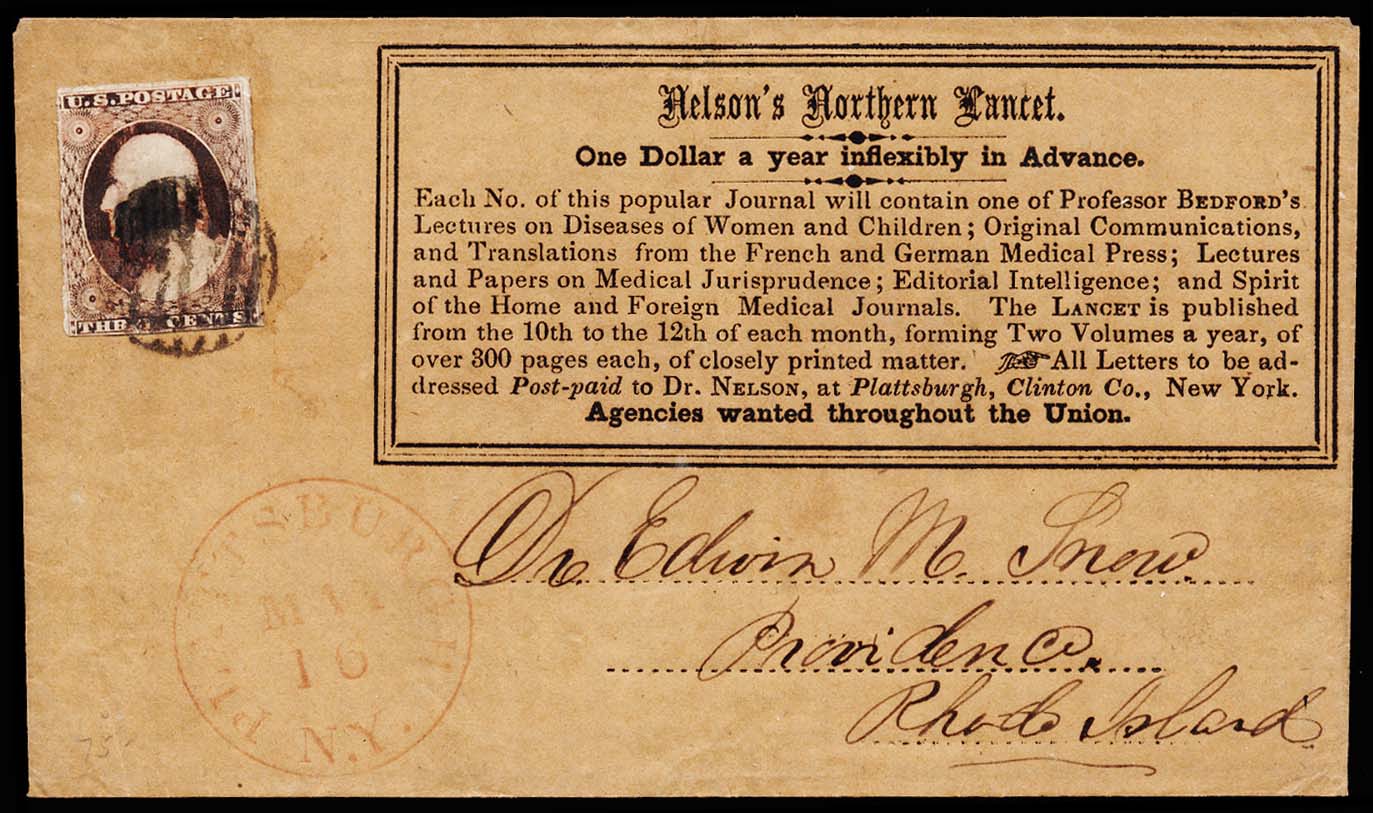 U.S. POSTAGE
THREE CENTS
Nelson's Northern Lancet.
One Dollar a year inflexibly in Advance.
Each No. of this popular Journal will contain one of Professor BEDFORD'S
Lectures on Diseases of Women and Children; Original Communications,
and Translations from the French and German Medical Press; Lectures
and Papers on Medical Jurisprudence; Editorial Intelligence; and Spirit
of the Home and Foreign Medical Journals. The LANCET is published
from the 10th to the 12th of each month, forming Two Volumes a year, of
over 300 pages each, of closely printed matter. ☞ All Letters to be ad-
dressed Post-paid to Dr. NELSON, at Plattsburgh, Clinton Co., New York.
Agencies wanted throughout the Union.
Dr. Edwin M. Snow.
Providence.
Rhode Island
PLATTSBURGH
16
N.Y.
75